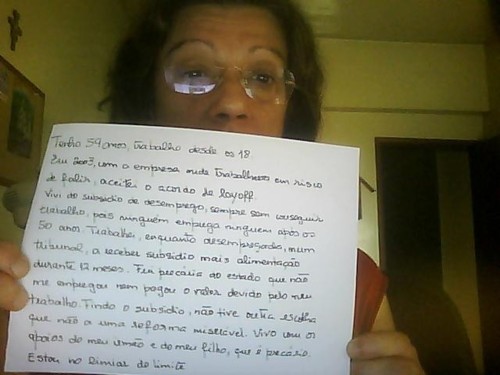 Tenho 59 anos, trabalho desde os 18.
Em 2003, com a empresa onde trabalhava em risco
de falir, aceitei o acordo de layoff.
Vivi do subsídio de desemprego, sempre sem conseguir
trabalho, pois ninguém emprega ninguém após os
50 anos. Trabalhei, enquanto desempregada, num
tribunal, a receber subsídio mais alimentação
durante 12 meses. Fui precária do estado que não
me empregou nem pagou o valor devido pelo meu
trabalho. Findo o subsídio, não tive outra escolha
que não a uma reforma miserável. Vivo com os
apoios do meu irmão e do meu filho, que é precário.
Estou no limiar do limite